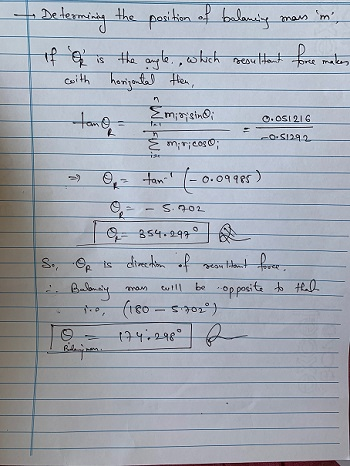 → Determining the position of balancing mass 'm',
If 'θR' is the angle, which resultant force makes
with horizontal then,
tan θR = Σ(i=1 to n) miri sinθi / Σ(i=1 to n) miri cosθi = 0.051216 / -0.51292
⇒ θR = tan⁻¹ (-0.09985)
θR = - 5.702
θR = 354.297°
So, θR is direction of resultant force.
∴ Balancing mass will be opposite to that
i.e, (180 - 5.702°)
θ Balancing mass = 174.298°